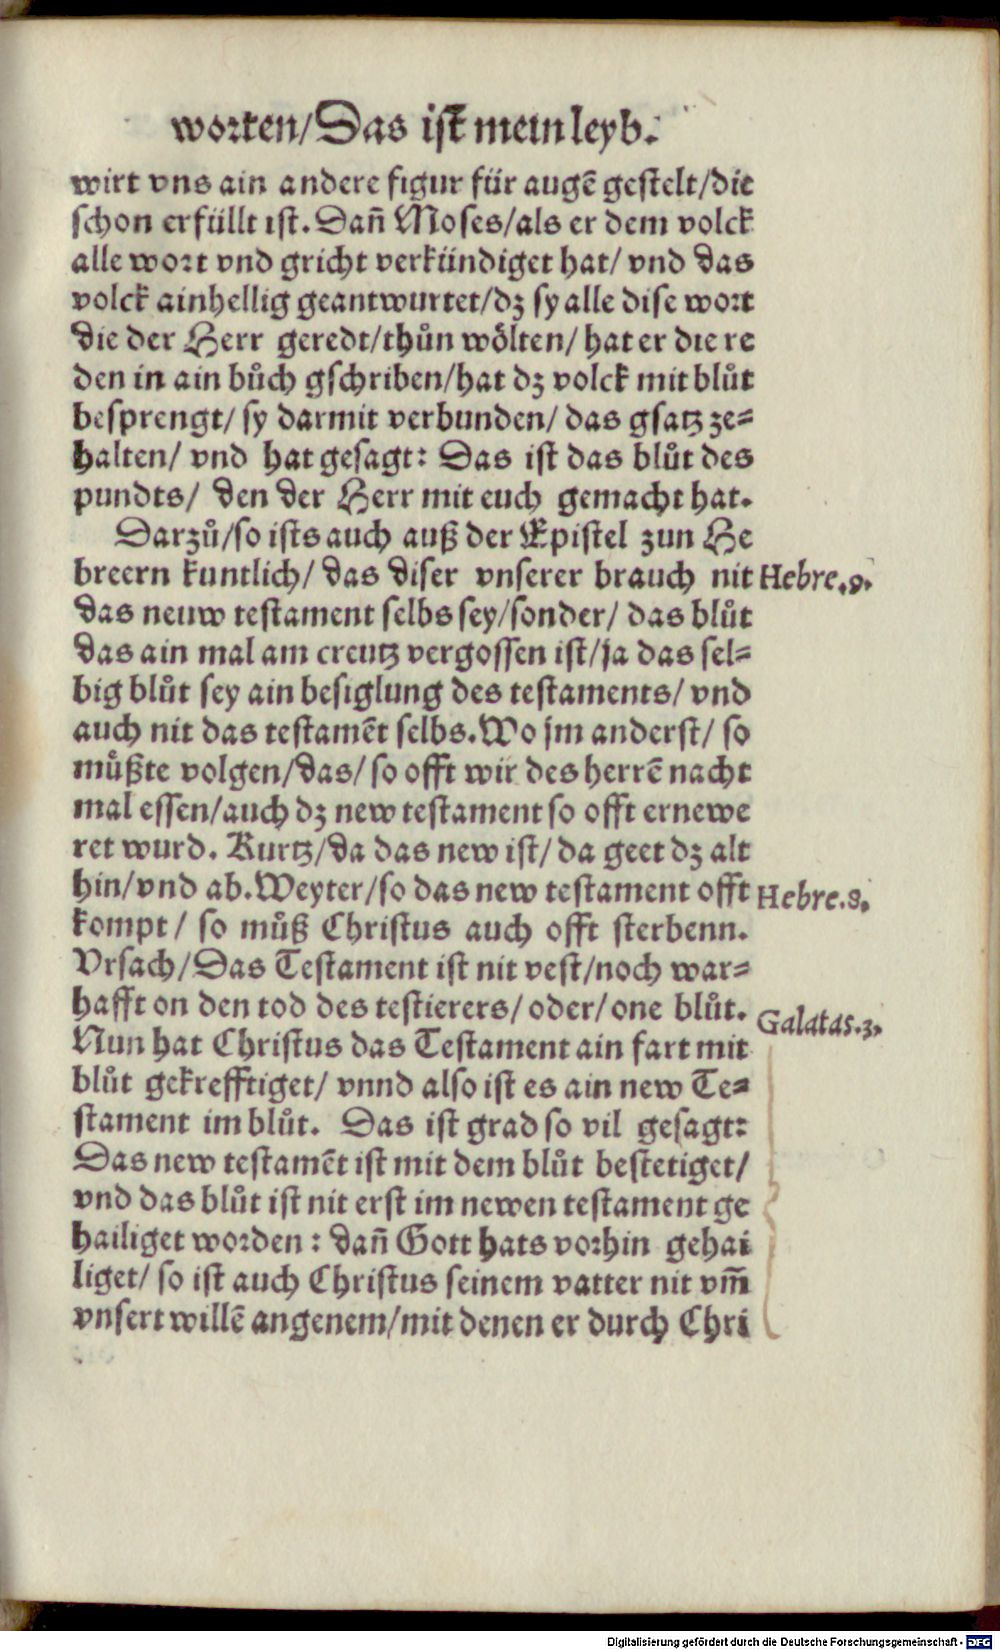 worten/Das ist mein leyb.
wirt vns ain andere figur für augē gestelt/die
schon erfüllt ist. Dañ Moses/als er dem volck
alle wort vnd gricht verkündiget hat/ vnd das
volck ainhellig geantwurtet/dz sy alle dise wort
die der Herr geredt/thůn wölten/ hat er die re
den in ain bůch gschriben/hat dz volck mit blůt
besprengt/ sy darmit verbunden/ das gsatz ze=
halten/ vnd hat gesagt: Das ist das blůt des
pundts/ den der Herr mit euch gemacht hat.
Darzů/so ists auch auß der Epistel zun He
breern kuntlich/ das diser vnserer brauch nit Hebre.9.
das neuw testament selbs sey/sonder/ das blůt
das ain mal am creutz vergossen ist/ja das sel=
big blůt sey ain besiglung des testaments/ vnd
auch nit das testamēt selbs. Wo jm anderst/ so
můßte volgen/das/ so offt wir des herrē nacht
mal essen/auch dz new testament so offt ernewe
ret wurd. Kurtz/da das new ist/ da geet dz alt
hin/vnd ab. Weyter/so das new testament offt Hebre.8.
kompt/ so můß Christus auch offt sterbenn.
Vrsach/Das Testament ist nit vest/noch war=
hafft on den tod des testierers/ oder/ one blůt. Galatas.3.
Nun hat Christus das Testament ain fart mit
blůt gekrefftiget/ vnnd also ist es ain new Te=
stament im blůt. Das ist grad so vil gesagt:
Das new testamēt ist mit dem blůt bestetiget/
vnd das blůt ist nit erst im newen testament ge
hailiget worden: dañ Gott hats vorhin gehai
liget/ so ist auch Christus seinem vatter nit vm̄
vnsert willē angenem/mit denen er durch Chri
Digitalisierung gefördert durch die Deutsche Forschungsgemeinschaft - DFG